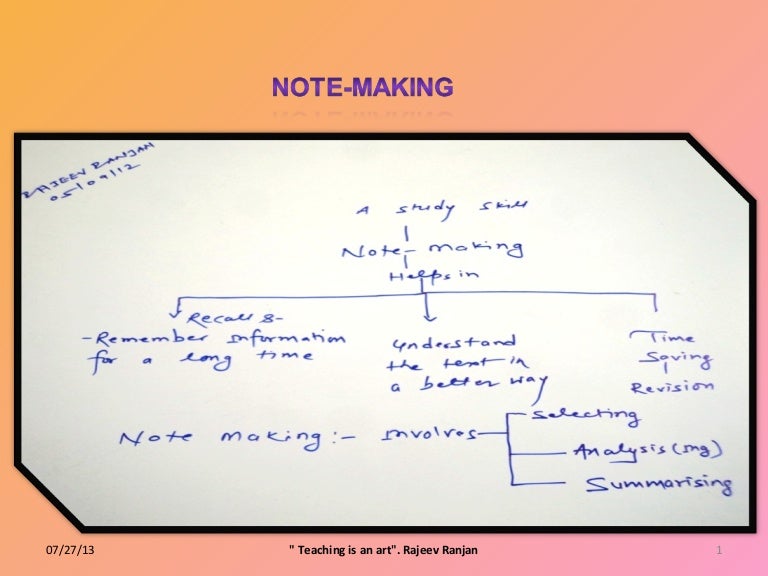 NOTE-MAKING
RAJEEV RANJAN
05/09/12
A study skill
Note- making
Helps in
Recall &-
-Remember Information
for a long time
Understand
the text in
a better way
Time
Saving
Revision
Note making:- Involves
Selecting
Analysis(ing)
Summarising
07/27/13
" Teaching is an art". Rajeev Ranjan
1